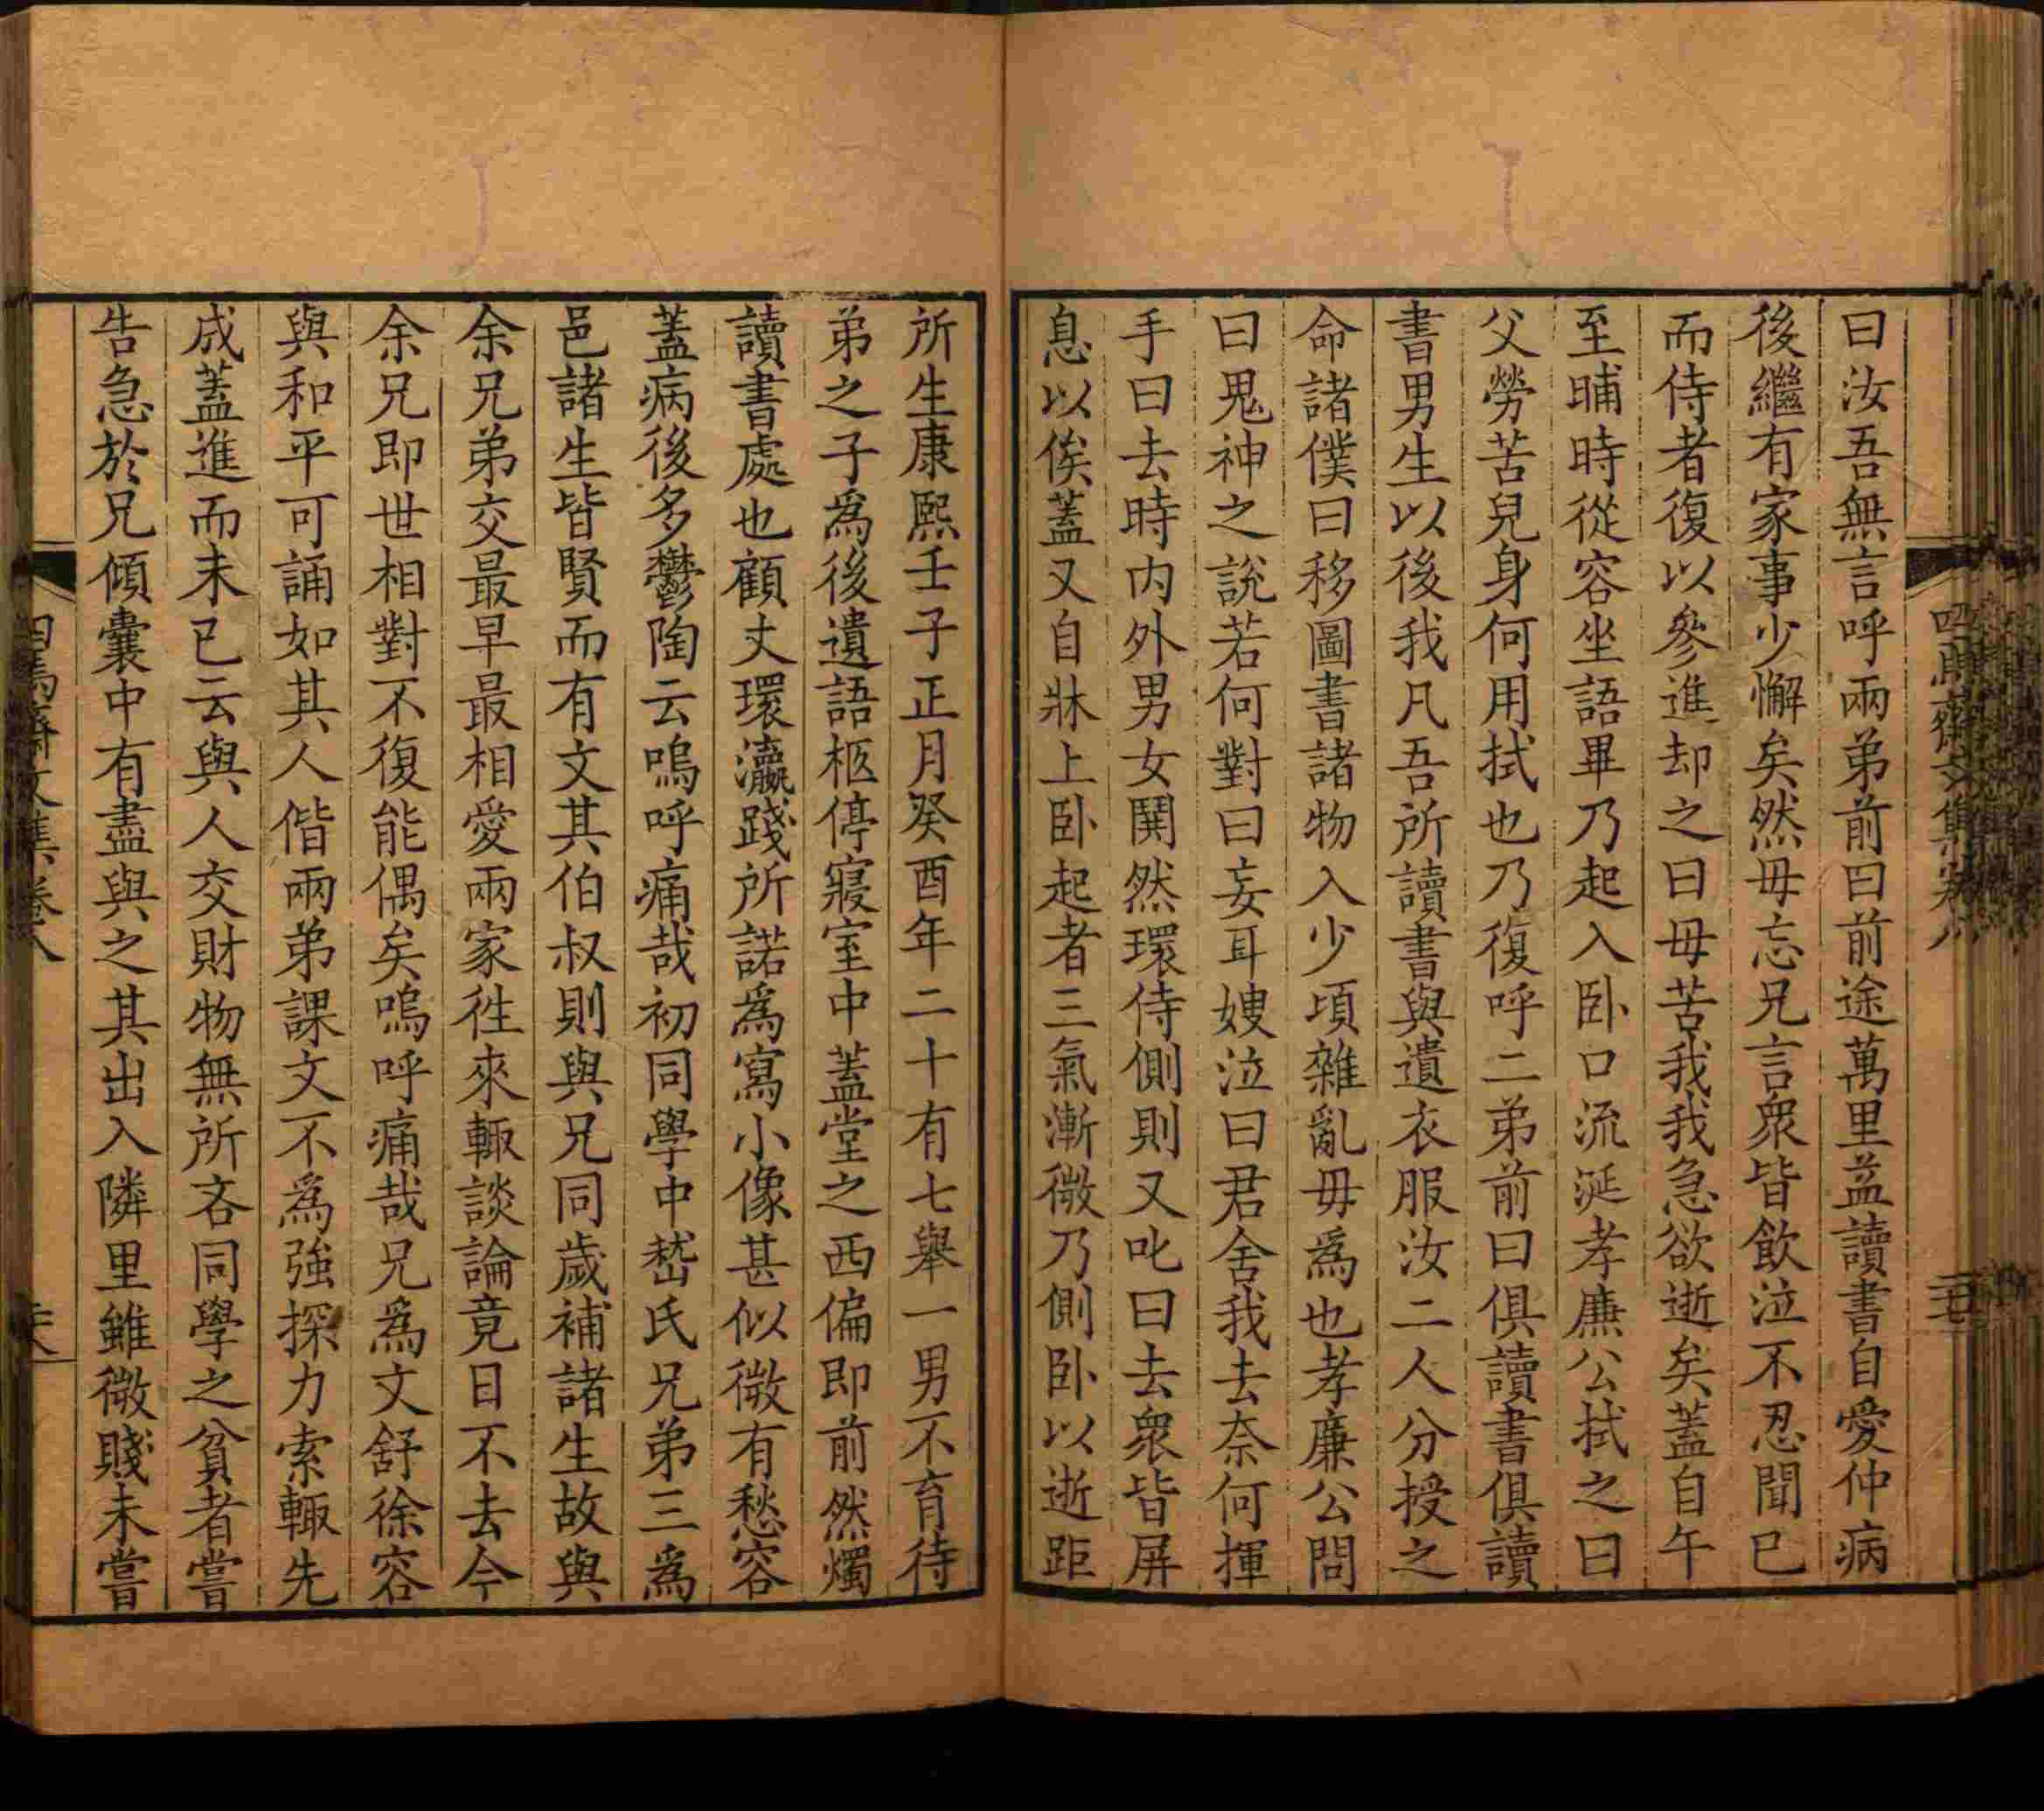 曰汝吾無言呼兩弟前曰前途萬里益讀書自愛仲病
後繼有家事少懈矣然毋忘兄言衆皆飲泣不忍聞已
而侍者復以參進却之曰毋苦我我急欲逝矣蓋自午
至晡時從容坐語畢乃起入臥口流涎孝廉公拭之曰
父勞苦兒身何用拭也乃復呼二弟前曰俱讀書俱讀
書男生以後我凡吾所讀書與遺衣服汝二人分授之
命諸僕曰移圖書諸物入少頃雜亂毋爲也孝廉公問
曰鬼神之說若何對曰妄耳嫂泣曰君舍我去奈何揮
手曰去時内外男女鬨然環侍側則又叱曰去衆皆屏
息以俟蓋又自牀上臥起者三氣漸微乃側臥以逝距
所生康熙壬子正月癸酉年二十有七舉一男不育待
弟之子爲後遺語柩停寢室中蓋堂之西偏即前然燭
讀書處也顧丈環瀛踐所諾爲寫小像甚似微有愁容
蓋病後多鬱陶云嗚呼痛哉初同學中嵇氏兄弟三爲
邑諸生皆賢而有文其伯叔則與兄同歲補諸生故與
余兄弟交最早最相愛兩家徃來輒談論竟日不去今
余兄即世相對不復能偶矣嗚呼痛哉兄爲文舒徐容
與和平可誦如其人偕兩弟課文不爲強探力索輒先
成蓋進而未已云與人交財物無所吝同學之貧者嘗
告急於兄傾囊中有盡與之其出入隣里雖微賤未嘗